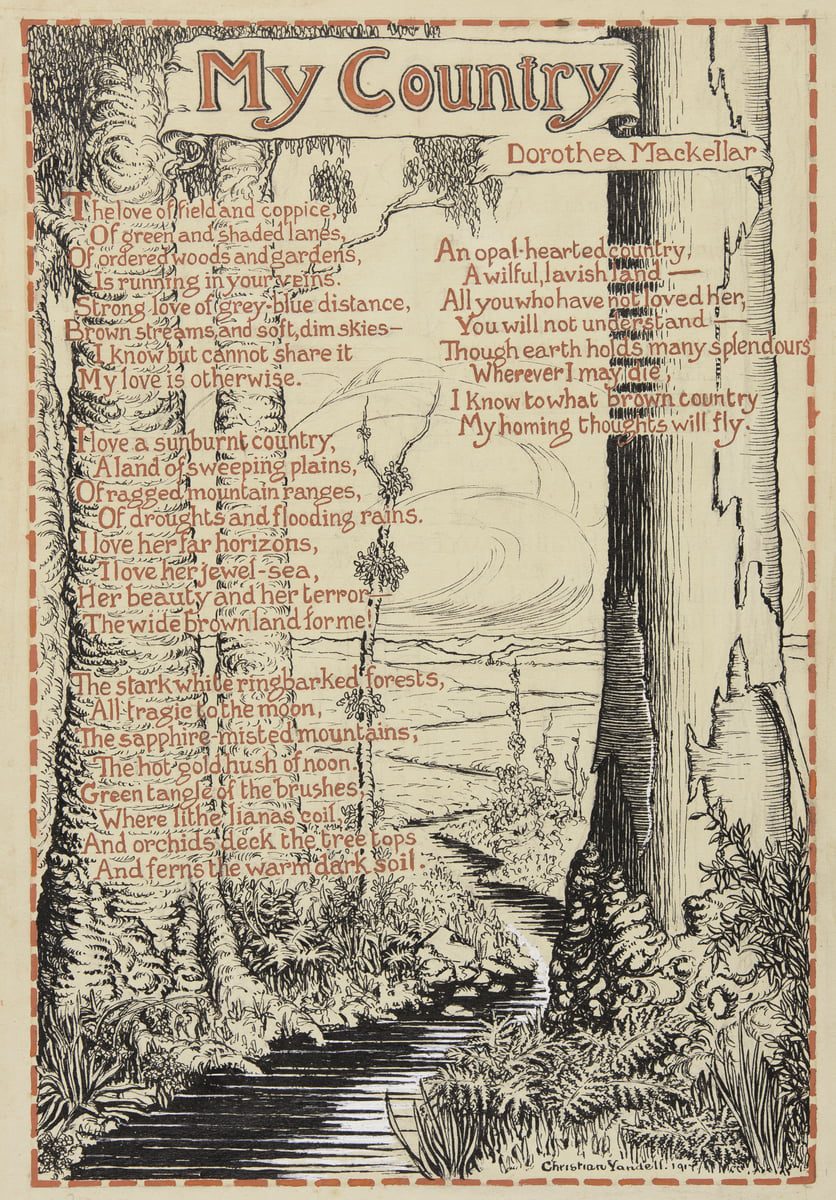 My Country
Dorothea Mackellar
The love of field and coppice,
Of green and shaded lanes,
Of ordered woods and gardens,
Is running in your veins.
Strong love of grey-blue distance,
Brown streams and soft, dim skies—
I know but cannot share it
My love is otherwise.
I love a sunburnt country,
A land of sweeping plains,
Of ragged mountain ranges,
Of droughts and flooding rains.
I love her far horizons,
I love her jewel-sea,
Her beauty and her terror—
The wide brown land for me!
The stark white ringbarked forests,
All tragic to the moon,
The sapphire-misted mountains,
The hot gold hush of noon.
Green tangle of the brushes,
Where lithe lianas coil,
And orchids deck the tree tops
And ferns the warm dark soil.
An opal-hearted country,
A wilful, lavish land —
All you who have not loved her,
You will not understand —
Though earth holds many splendours
Wherever I may die,
I know to what brown country
My homing thoughts will fly.
Christian Yandell.